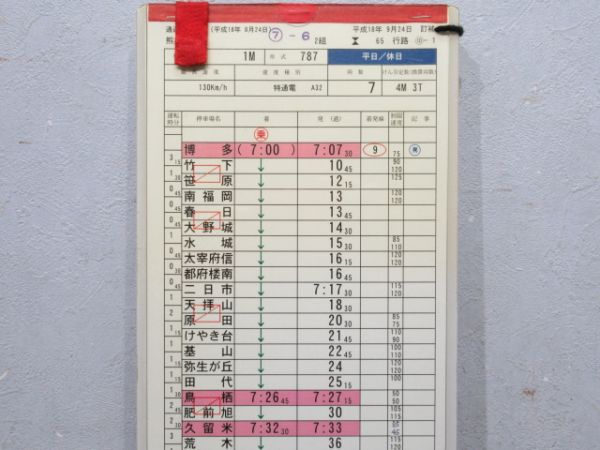 (平成18年 8月24日)
平成18年 9月24日 訂補
熊
⑦-6
2組
65 行路 ⑪-1
1M 形式 787 平日/休日
最高速度 速度種別 両数 けん引定数(換算両数)
130Km/h 特通電 A32 7 4M 3T
運転時分 停車場名 着 発(通) 着発線 制限速度 記事
乗
博多 (7:00) 7:07 30 9 75 発
3 15 竹下 ↓ 10 45 90 120
笹原 ↓ 12 15 125
南福岡 ↓ 13 120 120
0 45 春日 ↓ 13 45
大野城 ↓ 14 30
1 水城 ↓ 15 30 85 110
太宰府信 ↓ 16 15 120 120
都府楼南 ↓ 16 45
二日市 ↓ 7:17 30 115 120
1 天拝山 ↓ 18 30
2 原田 ↓ 20 30 85 75
1 けやき台 ↓ 21 45 110 90
基山 ↓ 22 45 100 110
弥生が丘 ↓ 24 110 120
1 15 田代 ↓ 25 15 100
1 鳥栖 7:26 45 7:27 15 50 50
2 45 肥前旭 ↓ 30 105 115
2 30 久留米 7:32 30 7:33
荒木 ↓ 36 115 120